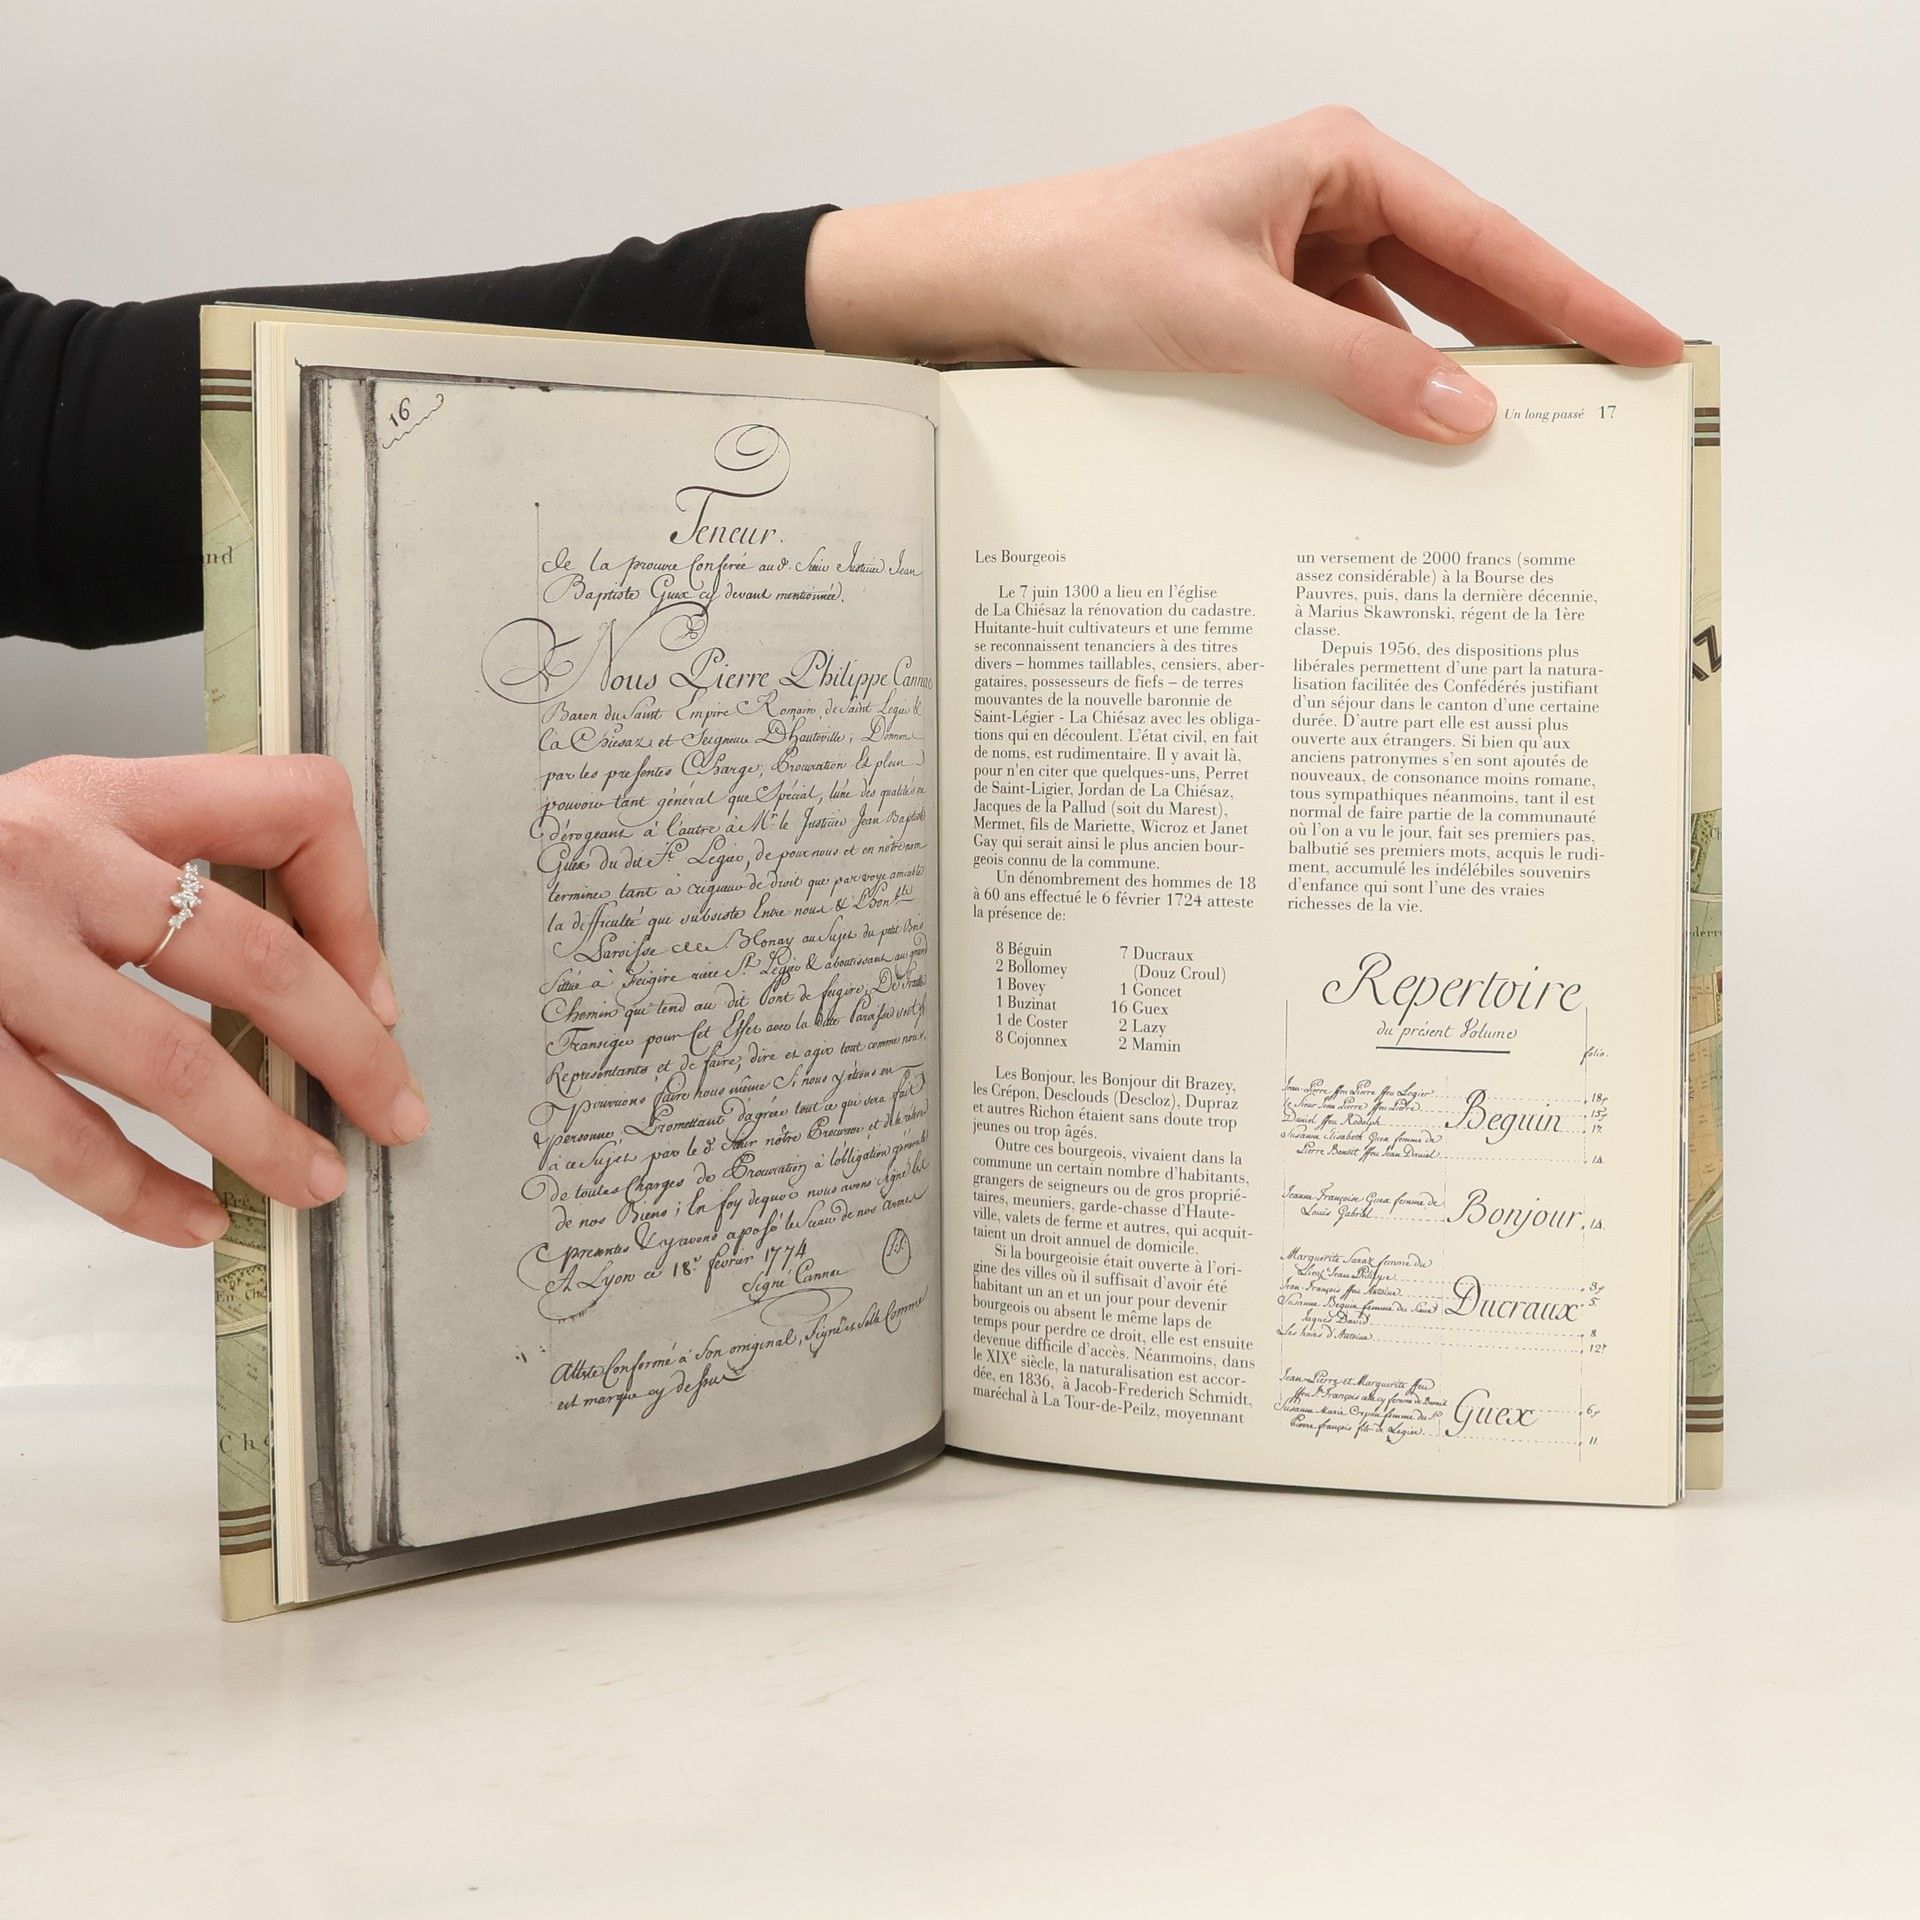 16
Teneur.
de la procure Conférée au d. Sieur Justicier Jean
Baptiste Guex cy devant mentionnée.
Nous Pierre Philippe Cannac
Baron du Saint Empire Romain, de Saint Legier &
la Chiesaz et Seigneur D'hauteville, Donnons
par les presentes Charge, Procuration et plein
pouvoir tant général que Spécial, l'une des qualités ne
dérogeant à l'autre à Mr. le Justicier Jean Baptiste
Guex du dit St. Legier, de pour nous et en nôtre nom
terminer tant à rigueur de droit que par voye amiable
la difficulté qui subsiste Entre nous & L'honble
Paroisse de Blonay au Sujet du petit Bois
Sittué à Feigire riere St. Legier & aboutissant au grand
Chemin qui tend au dit Pont de feigire, De
Transiger pour Cet Effet avec la dite Paroisse
Representants et de faire, dire et agir tout comme nous
pourrions faire nous même Si nous y étions en
personne, Promettant d'agréer tout ce qui sera fait
à ce Sujet par le d. Sieur nôtre Procureur et
de toutes Charges de Procuration à l'obligation générale
de nos Biens; En foy dequoi nous avons signé les
presentes & y avons aposé le Sceau de nos armes
A Lyon ce 18e. fevrier 1774
Signé Cannac
Atteste Conforme à Son original, Signé et Scellé Comme
est marqué cy dessus
Un long passé 17
Les Bourgeois
Le 7 juin 1300 a lieu en l'église
de La Chiésaz la rénovation du cadastre.
Huitante-huit cultivateurs et une femme
se reconnaissent tenanciers à des titres
divers – hommes taillables, censiers, aber-
gataires, possesseurs de fiefs – de terres
mouvantes de la nouvelle baronnie de
Saint-Légier - La Chiésaz avec les obliga-
tions qui en découlent. L'état civil, en fait
de noms, est rudimentaire. Il y avait là,
pour n'en citer que quelques-uns, Perret
de Saint-Ligier, Jordan de La Chiésaz,
Jacques de la Pallud (soit du Marest),
Mermet, fils de Mariette, Wicroz et Janet
Gay qui serait ainsi le plus ancien bour-
geois connu de la commune.
Un dénombrement des hommes de 18
à 60 ans effectué le 6 février 1724 atteste
la présence de:
8 Béguin
2 Bollomey
1 Bovey
1 Buzinat
1 de Coster
8 Cojonnex
7 Ducraux
(Douz Croul)
1 Goncet
16 Guex
2 Lazy
2 Mamin
Les Bonjour, les Bonjour dit Brazey,
les Crépon, Desclouds (Descloz), Dupraz
et autres Richon étaient sans doute trop
jeunes ou trop âgés.
Outre ces bourgeois, vivaient dans la
commune un certain nombre d'habitants,
grangers de seigneurs ou de gros proprié-
taires, meuniers, garde-chasse d'Haute-
ville, valets de ferme et autres, qui acquit-
taient un droit annuel de domicile.
Si la bourgeoisie était ouverte à l'ori-
gine des villes où il suffisait d'avoir été
habitant un an et un jour pour devenir
bourgeois ou absent le même laps de
temps pour perdre ce droit, elle est ensuite
devenue difficile d'accès. Néanmoins, dans
le XIXe siècle, la naturalisation est accor-
dée, en 1836, à Jacob-Frederich Schmidt,
maréchal à La Tour-de-Peilz, moyennant
un versement de 2000 francs (somme
assez considérable) à la Bourse des
Pauvres, puis, dans la dernière décennie,
à Marius Skawronski, régent de la 1ère
classe.
Depuis 1956, des dispositions plus
libérales permettent d'une part la natura-
lisation facilitée des Confédérés justifiant
d'un séjour dans le canton d'une certaine
durée. D'autre part elle est aussi plus
ouverte aux étrangers. Si bien qu'aux
anciens patronymes s'en sont ajoutés de
nouveaux, de consonance moins romane,
tous sympathiques néanmoins, tant il est
normal de faire partie de la communauté
où l'on a vu le jour, fait ses premiers pas,
balbutié ses premiers mots, acquis le rudi-
ment, accumulé les indélébiles souvenirs
d'enfance qui sont l'une des vraies
richesses de la vie.
Repertoire
du présent Volume
folio.
Jean-Pierre ffeu Pierre ffeu Legier
le Sieur Jean Pierre ffeu Pierre
Daniel ffeu Rodolph 17.
Susanne Elisabeth Guex femme de
Pierre Benoit ffeu Jean Daniel 14
Beguin
Jeanne Françoise Guex femme de
Louis Gabriel
Bonjour 14
Marguerite Saraz femme du
Lieut. Jean Philippe
Jean François ffeu Antoine 5.
Susanne Beguin femme du Sieur
Jaques David 8
Les hoirs d'Antoine
Ducraux
Jean-Pierre et Marguerite ffeu
Susanne Marie Crepon femme du Sr.
Pierre françois fils de Legier 11
Guex